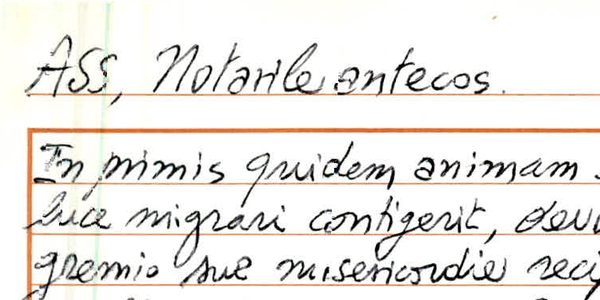 ASS, Notarile antecos.
In primis quidem animam
luce migrari contigerit, devo
gremio sue misericordie reci